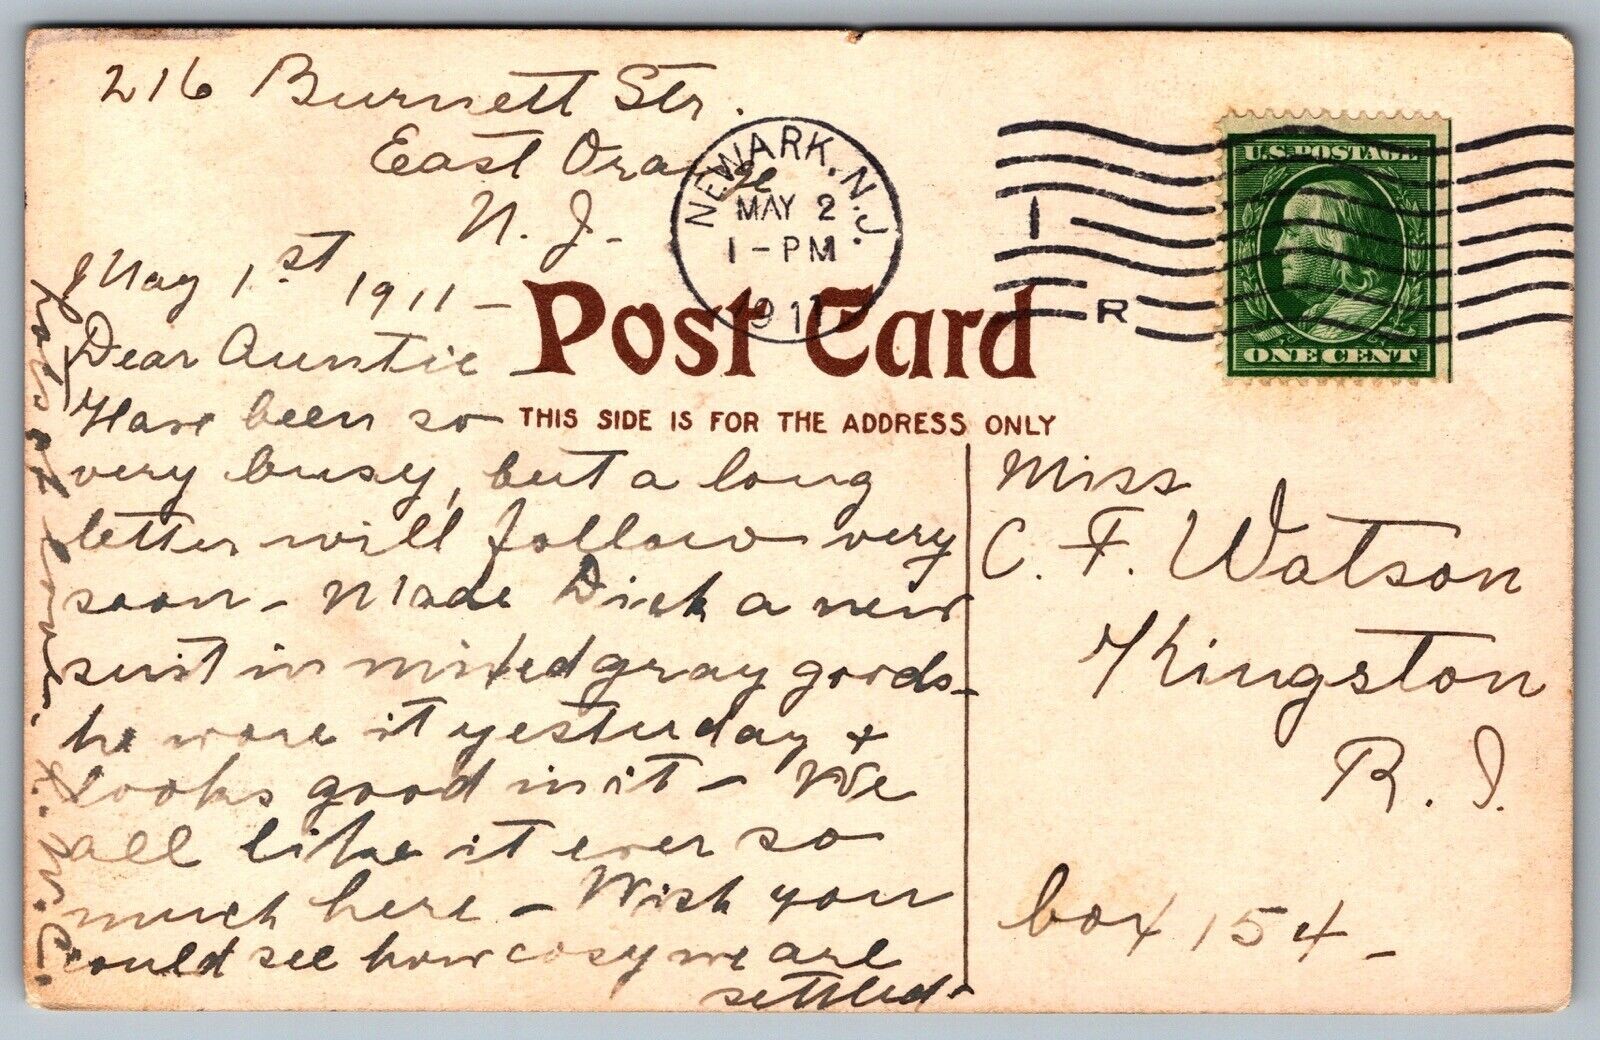 216 Burnett Str.
East Orange
N. J.
May 1st 1911 -
Dear Auntie -
Have been so
very busy, but a long
letter will follow very
soon - Made Dick a new
suit in mixed gray goods -
he wore it yesterday +
looks good in it - We
all like it ever so
much here - Wish you
could see how cosy we are
settled -
Lots of love.
NEWARK, N.J.
MAY 2
1 - PM
1911
1
R
U.S. POSTAGE
ONE CENT
Post Card
THIS SIDE IS FOR THE ADDRESS ONLY
Miss
C. F. Watson
Kingston
R. I.
box 154 -